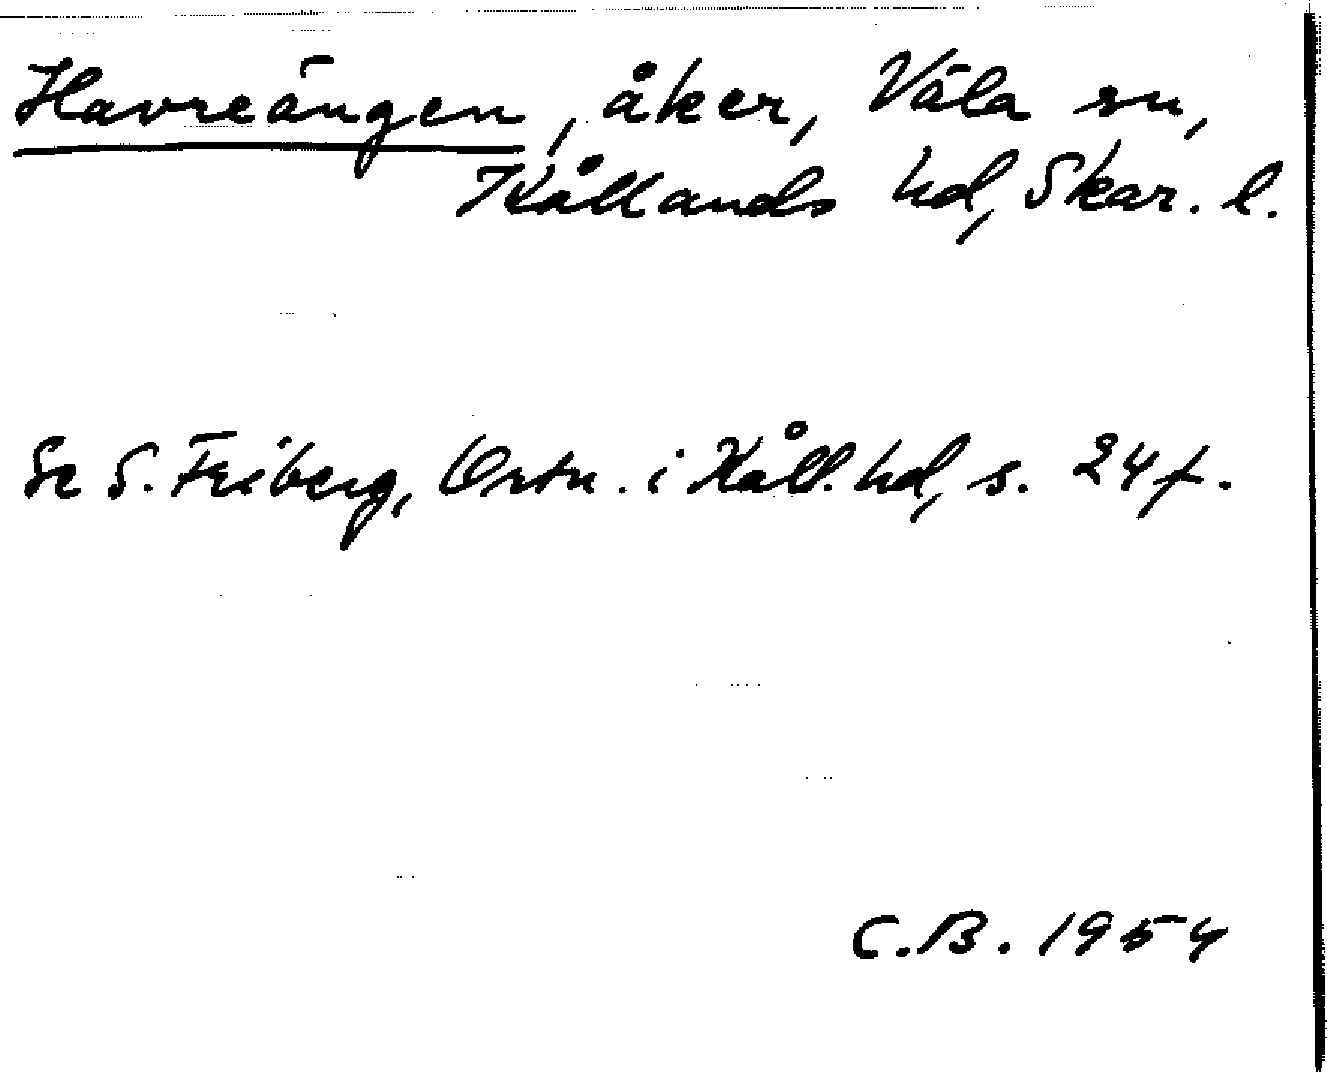 Havreängen, åker, Väla sn,
Kållands hd, Skar. l.
Se S. Friberg, Ortn. i Kåll. hd, s. 24 f.
C.B. 1954